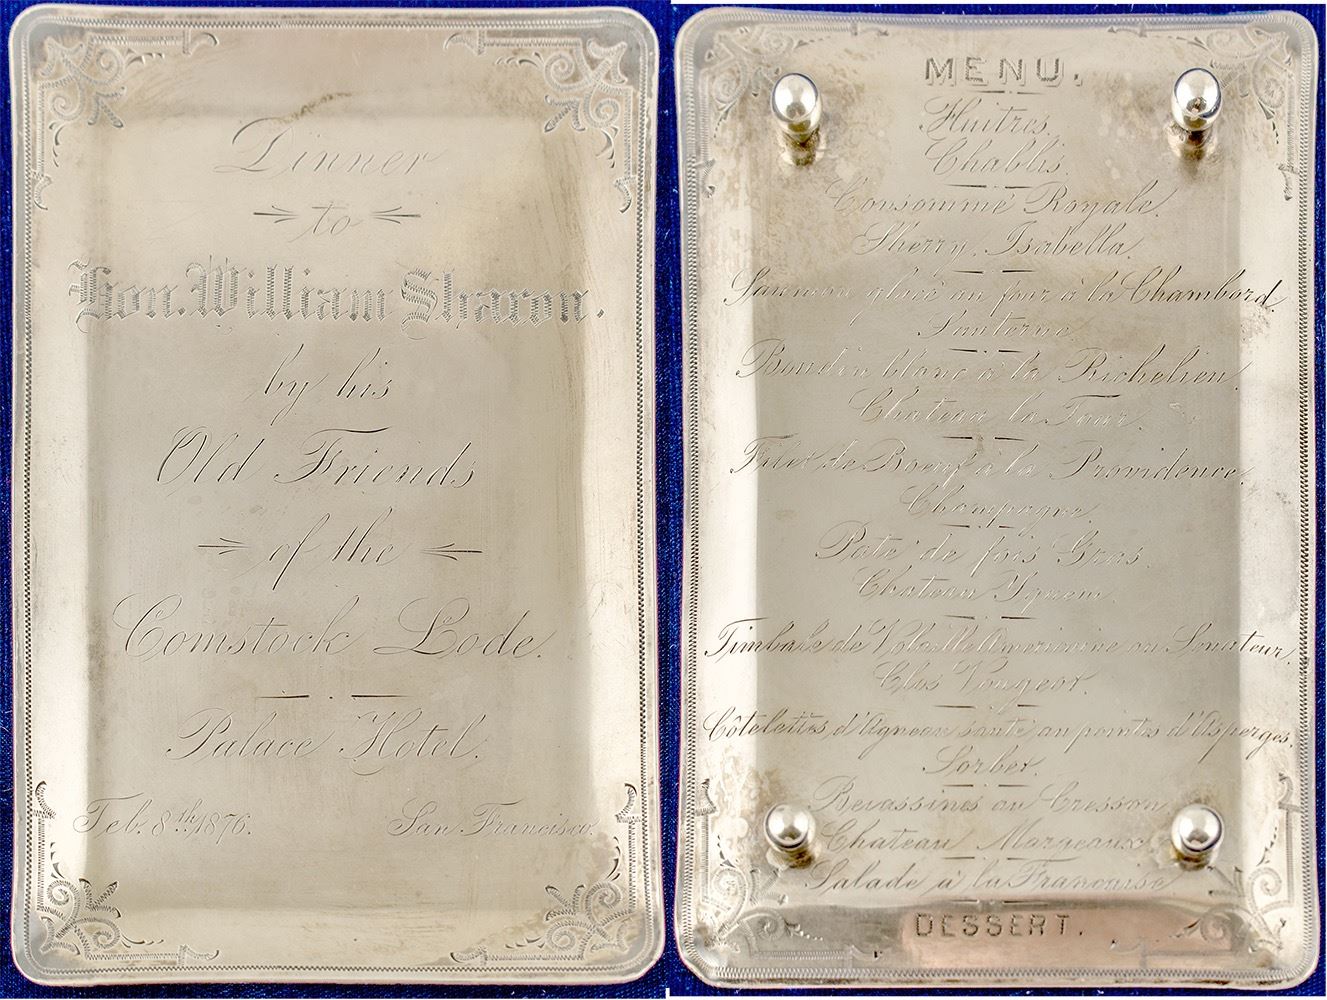 Dinner
to
Hon. William Sharon.
by his
Old Friends
of the
Comstock Lode.
Palace Hotel.
Feb. 8th 1876. San Francisco.
MENU.
Huitres.
Chablis.
Consommé Royale.
Sherry, Isabella.
Saumon glacé au four à la Chambord.
Sauterne.
Boudin blanc à la Richelieu.
Chateau la Tour.
Filet de Boeuf à la Providence.
Champagne.
Paté de fois Gras.
Chateau Yquem.
Timbale de Volaille Americaine au Senateur.
Clos Vougeot.
Côtelettes d'Agneau sauté au pointes d'Asperges.
Sorbet.
Becassines au Cresson
Chateau Margeaux
Salade à la Francaise
DESSERT.